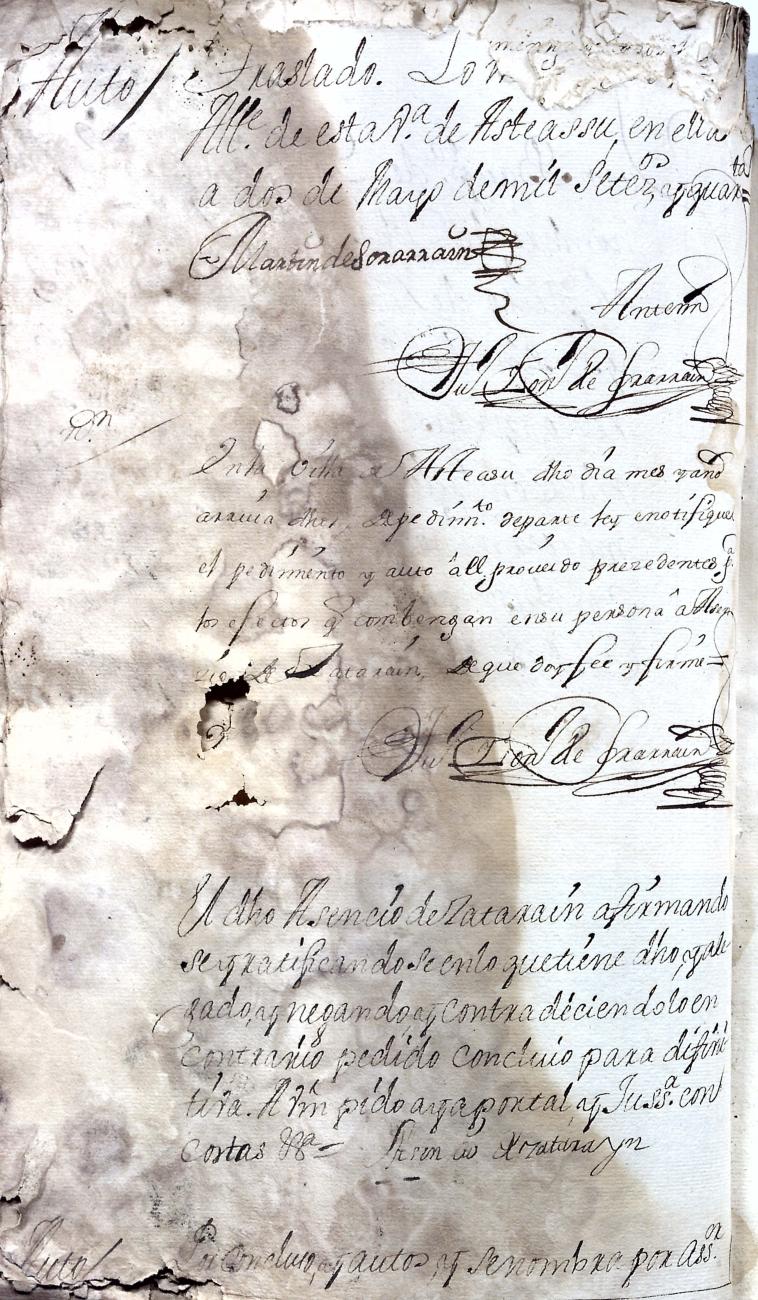 Auto / Traslado. Lo
Alle. de esta Va. de Asteassu, en ella
a dos de Mayo de mil Setezos. y quarta=
Martin de Sorarrain
Ante mi
Ju. Leon de Ararrain
Nn /
En la Villa de Asteasu dho dia mes y año
arriva dhos, de pedimto. de parte ley e notifique
el pedimento y auto a el proveido prezedentes pa.
los efectos q combengan en su persona a Asen
cio de Zatarain, de que doy fee y firme=
Ju. Leon de Ararrain
El dho Asencio de Zatarain afirmando
se y ratificandose en lo que tiene dho, y ale
gado, y negando, y contradeciendo lo en
contrario pedido concluio para difini
tiva. A Vm pido aya por tal y Jussa. con
costas &a= Asencio de zatarayn
Auto / Por concluso, y autos y se nombra por Assor.